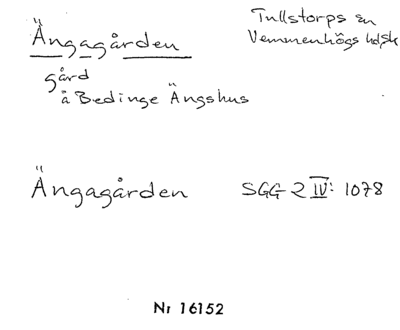 Ängagården
Tullstorps sn
Vemmenhögs hd, Sk
gård
å Bedinge Ängshus
Ängagården
SGG 2 IV: 1078
Nr 16152